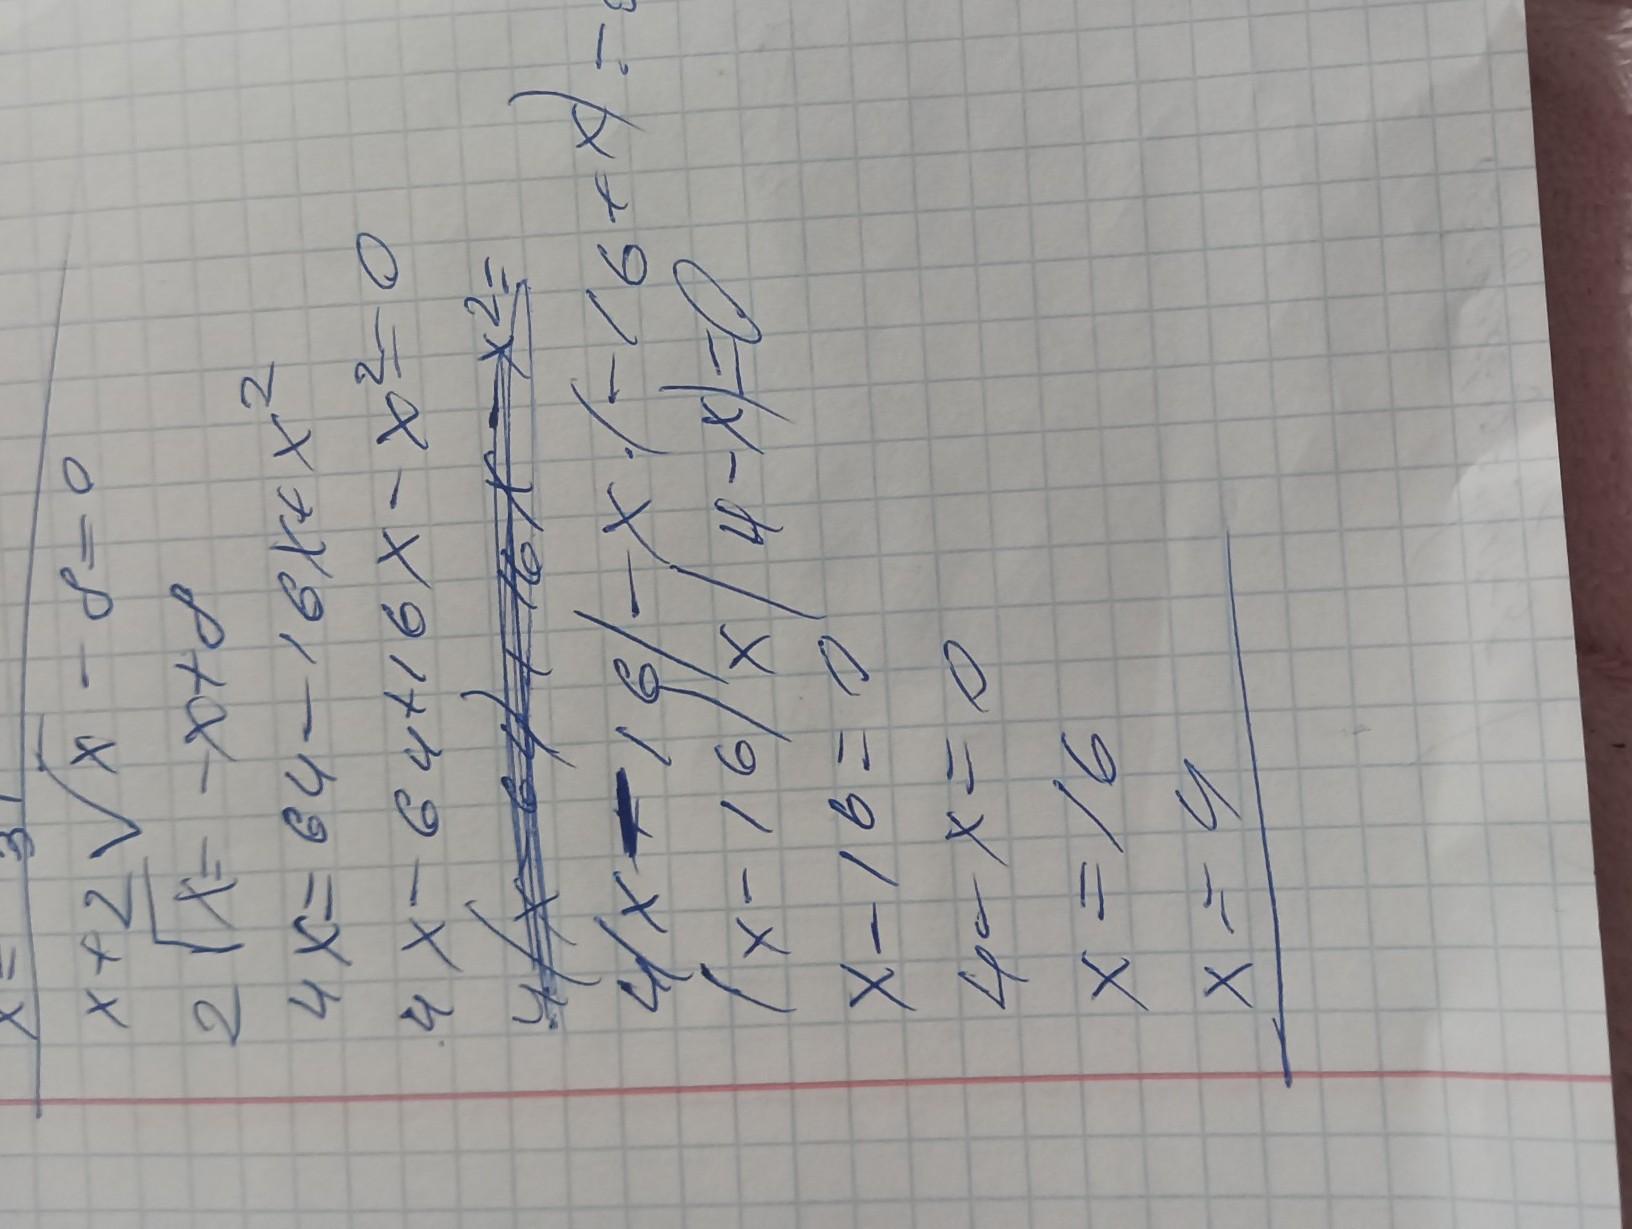 x + 2√x - 8 = 0
2√x = -x + 8
4x = 64 - 16x + x²
4x - 64 + 16x - x² = 0
4(x - 16) - x · (-16 + x) =
(x - 16)(4 - x) = 0
x - 16 = 0
4 - x = 0
x = 16
x = 4